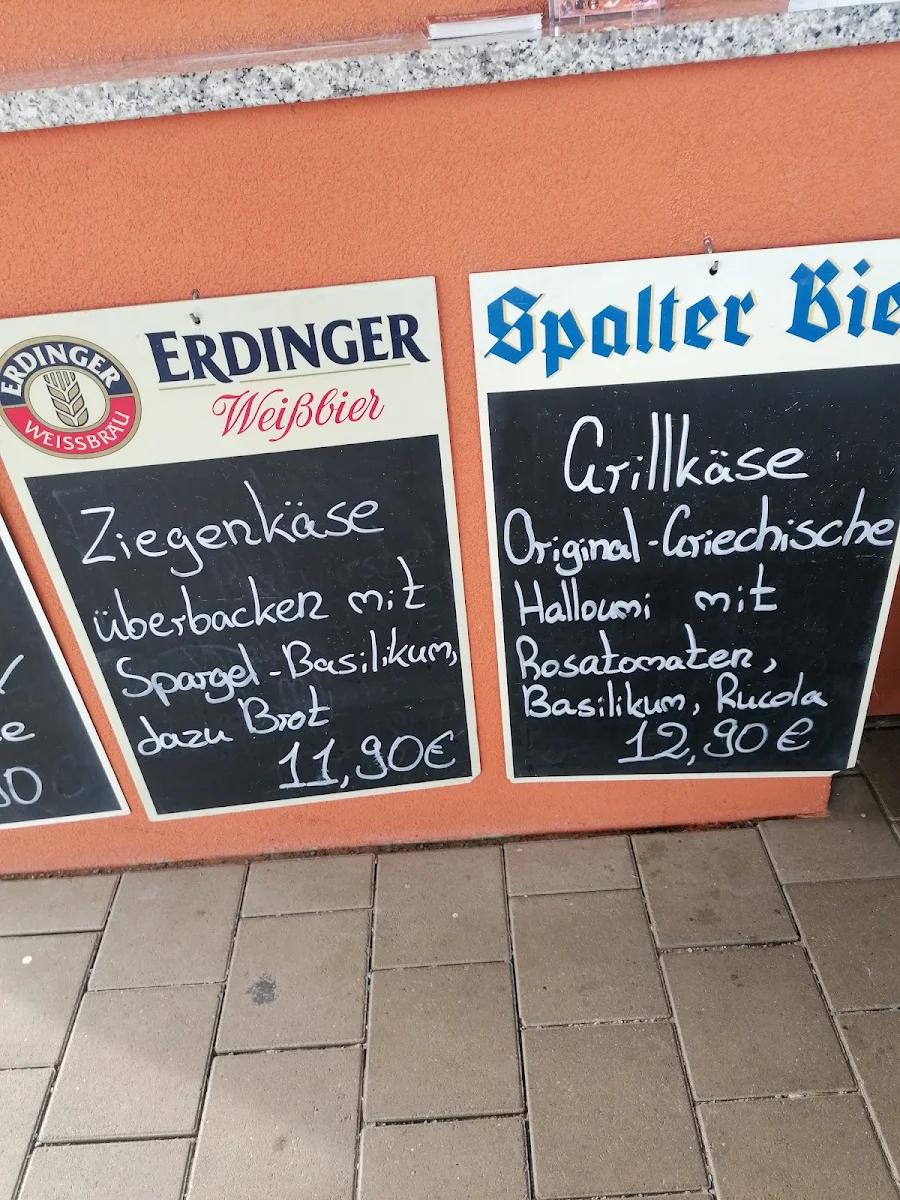 ERDINGER
WEISSBRÄU
ERDINGER
Weißbier
Ziegenkäse
überbacken mit
Spargel-Basilikum,
dazu Brot
11,90€
Spalter Bie
Grillkäse
Original-Griechische
Halloumi mit
Rosatomaten,
Basilikum, Rucola
12,90€